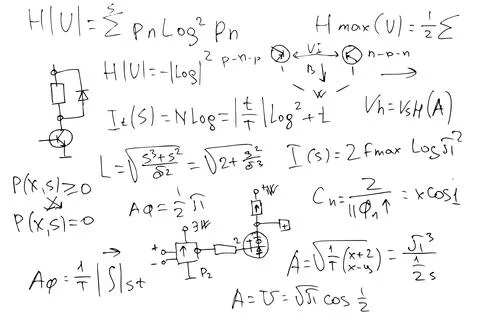 H|U| = Σ^s Pn Log² Pn
H max (U) = 1/2 Σ
H|U| = -|Log|²
p-n-p
VI
n-p-n
B
W
It(S) = N Log = |t/T| Log² + t
Vh = VsH(A)
L = √(S³+S²/δ²) = √(2+S²/δ³)
I(s) = 2Fmax Log √π²
P(x,s) ≥ 0
P(x,s) = 0
Aφ = 1/2 √π
+W
Cn = 2/||Φn↑ = x cos i
+
-
3W
2
P2
Aφ = 1/T |∫| st
A = √(1/T (x+2 / x-y)) = √π³ / (1/2 s)
A = U = √π cos 1/2